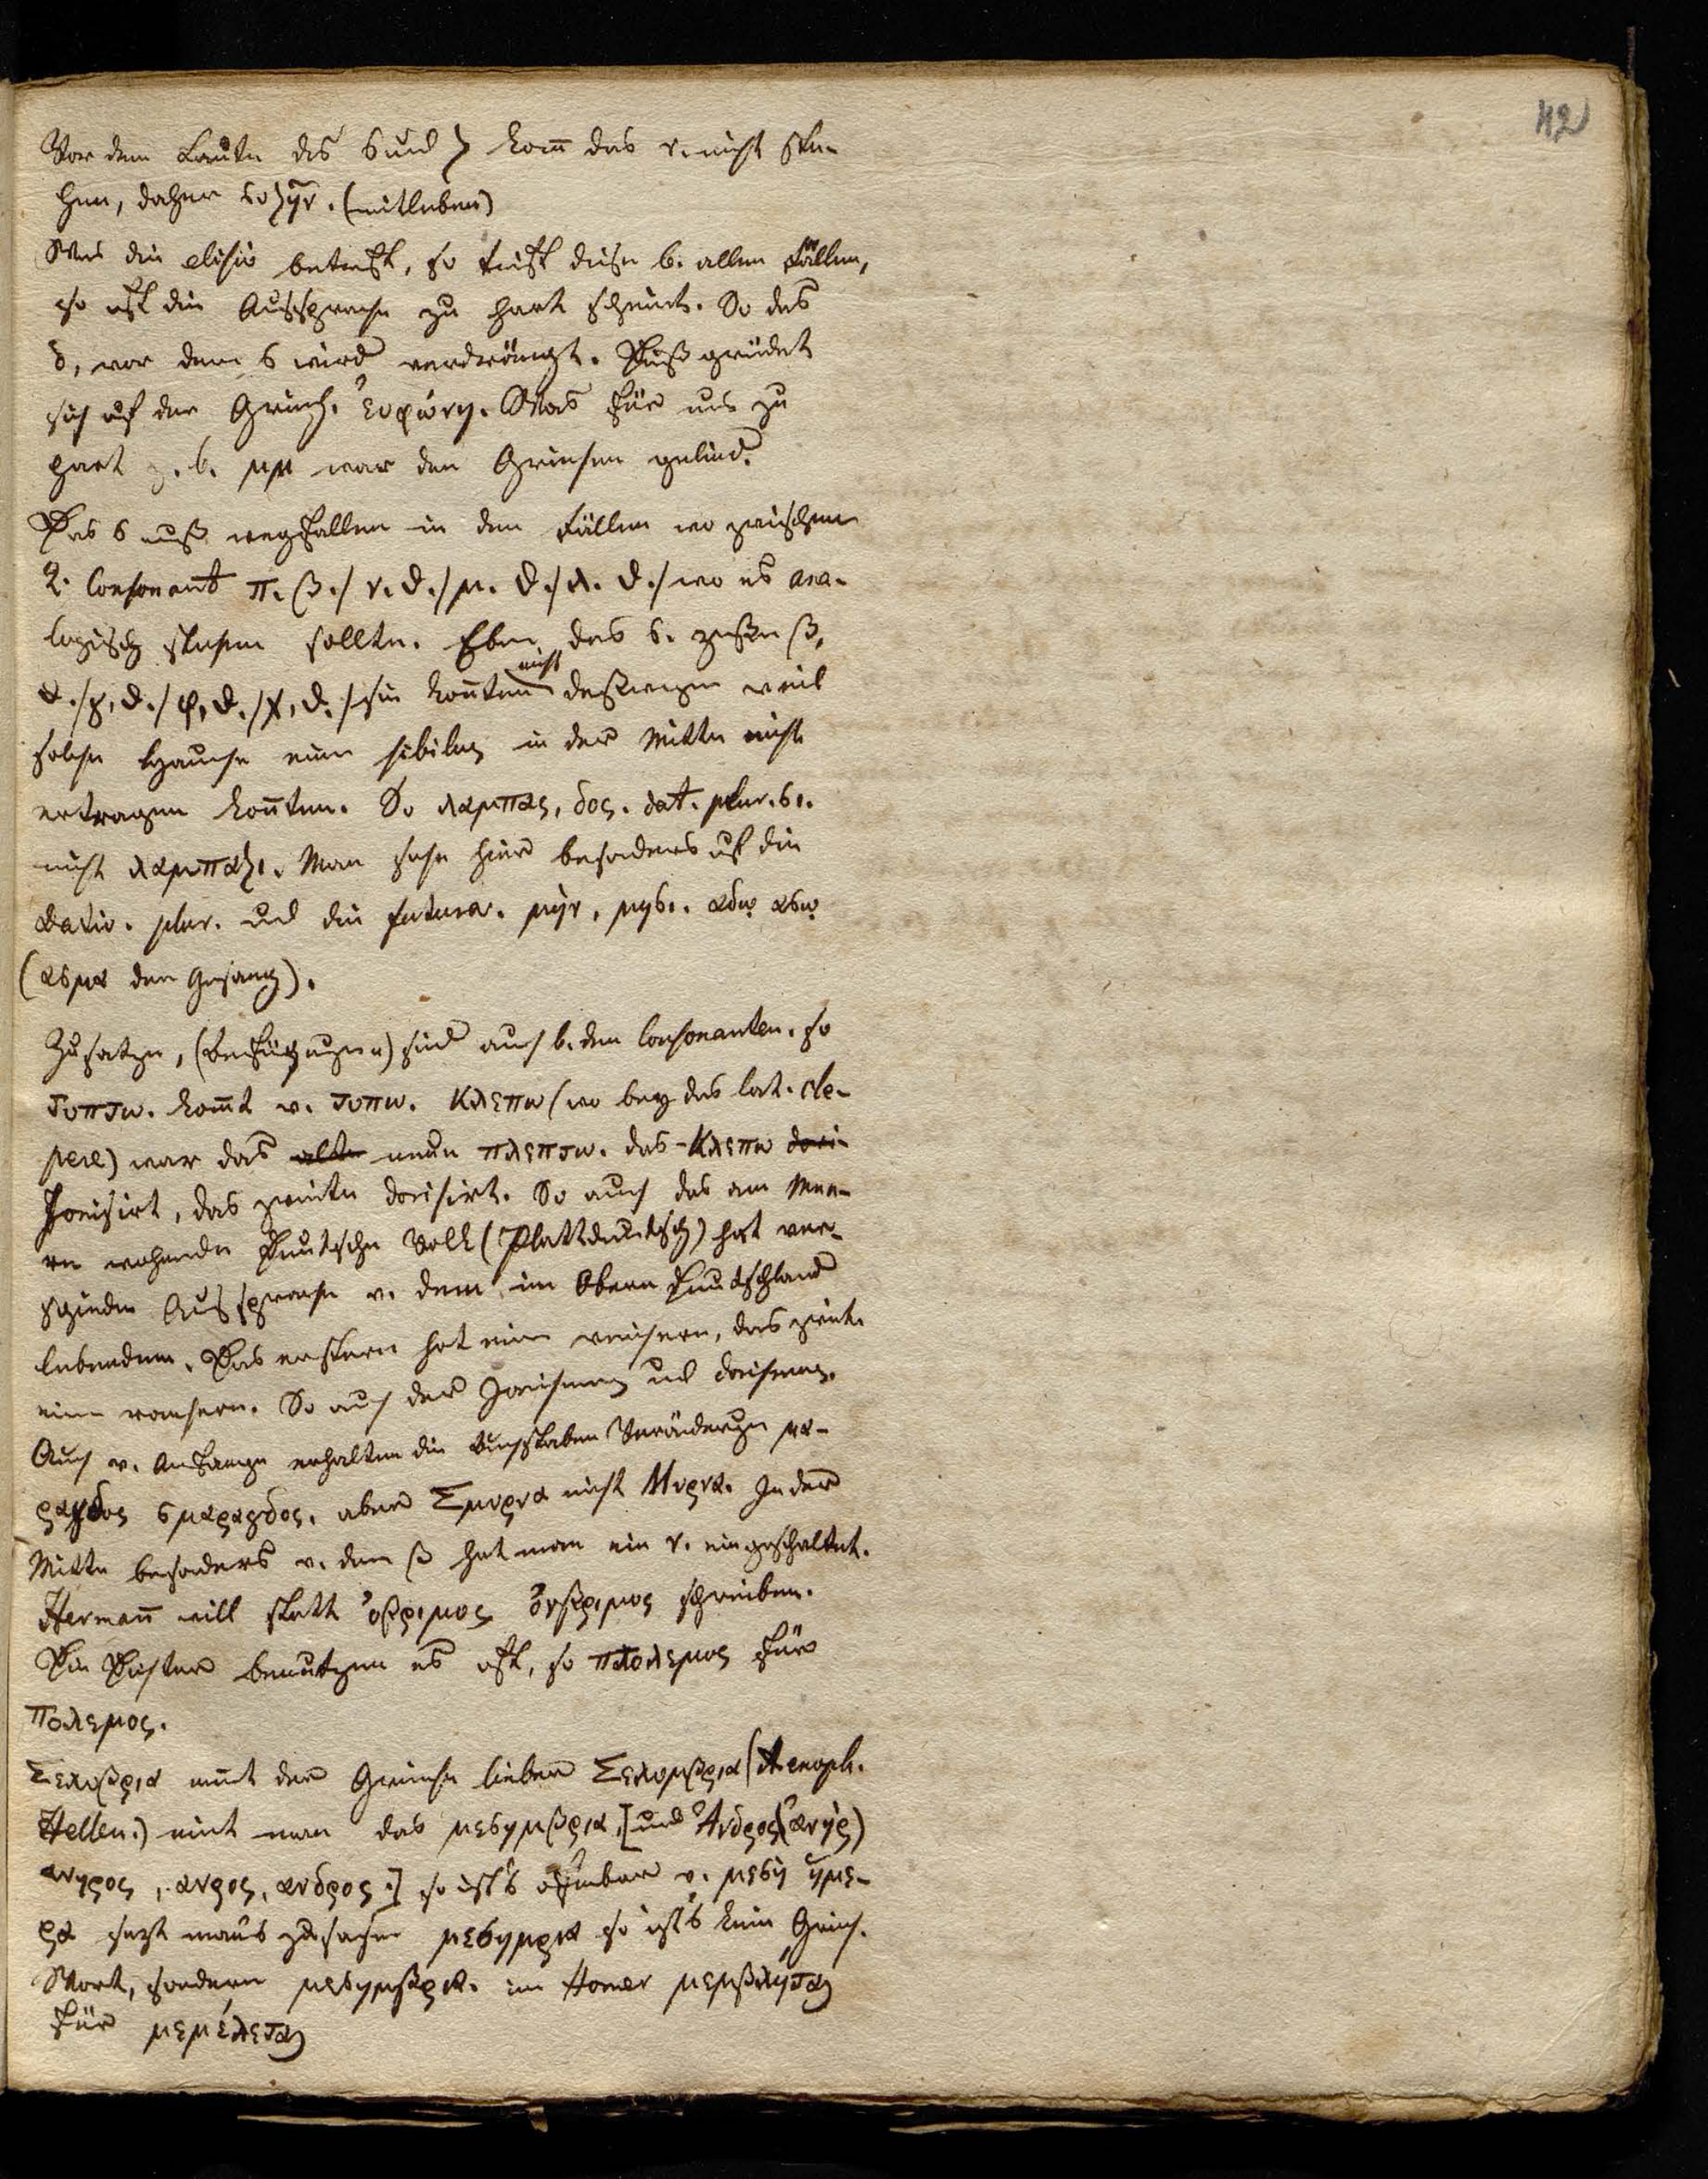 42
Vor dem Laute des σ und ζ kan̄ das ν. nicht ste-
hen, daher συζῆν. (mitleben)
Was die elisio betrift, so trift diese b. allen Fällen,
so oft die Aussprache zu hart scheint. So das
δ, vor dem σ wird verdrängt. Dieß gründet
sich auf der Griech. εὐφώνη. Was für uns zu
hart z. b. μμ war den Griechen gelind.
Das σ muß wegfallen in den Fällen wo zwischen
2. Consonant π. β./ ν. θ./ μ. θ./ λ. θ./ wo es ana-
logisch stehen sollte. Eben das σ.
θ./ γ, θ./ φ, θ./ χ, θ./ sie kon̄ten nicht deßwegen weil
solche Hauche einen sibilus in der Mitte nicht
ertragen kon̄ten. So λαμπας, δος. dat. plur. σι.
nicht λαμπαζι. Man sehe hier besonders auf die
Dativ. plur. und die futura. μὴν, μησι. αδω ασω
(ασμα der Gesang).
Zusätze, (Beifügungen) sind auch b. den Consonanten. so
τυπτω. kom̄t v. τυπω. κλεπω (wo bey das lat. cle-
pere) war das alte neue πλεπτω. das κλεπω dori-
Jonisirt, das zweite dorisirt. So auch das am Mee-
re wohnende Deutsche Volk (Plattdeutsch) hat ver-
schieden Aussprache v. dem im Obern Deutschland
lebenden. Das erstere hat eine weichere, das zweite
eine rauhere. So auch der Jonismus und Dorismus.
Auch v. Anfange erhalten die Buchstaben Veränderungen μα-
ραγδος σμαραγδος. aber Σμυρνα nicht Μυρνα. In der
Mitte besonders v. dem β hat man ein ν. eingeschaltet.
Herman̄ will statt ὀβριμος ὀνβριμος schreiben.
Die Dichter benutzen es oft, so πτολεμος für
πολεμος.
Σελυβρια nen̄t der Grieche lieber Σελυμβρια (Xenoph.
Hellen.) nim̄t man das μεσημβρια, [und Ἀνδρος (ἀνὴρ)
ανηρος, ανρος, ανδρος.] so ist's offenbar v. μεση ἡμε-
ρα sezt man's zusam̄en μεσημρια so ist's kein Griech.
Wort, sondern μεσημβρια. im Homer μεμβλήται
für μεμέλεται